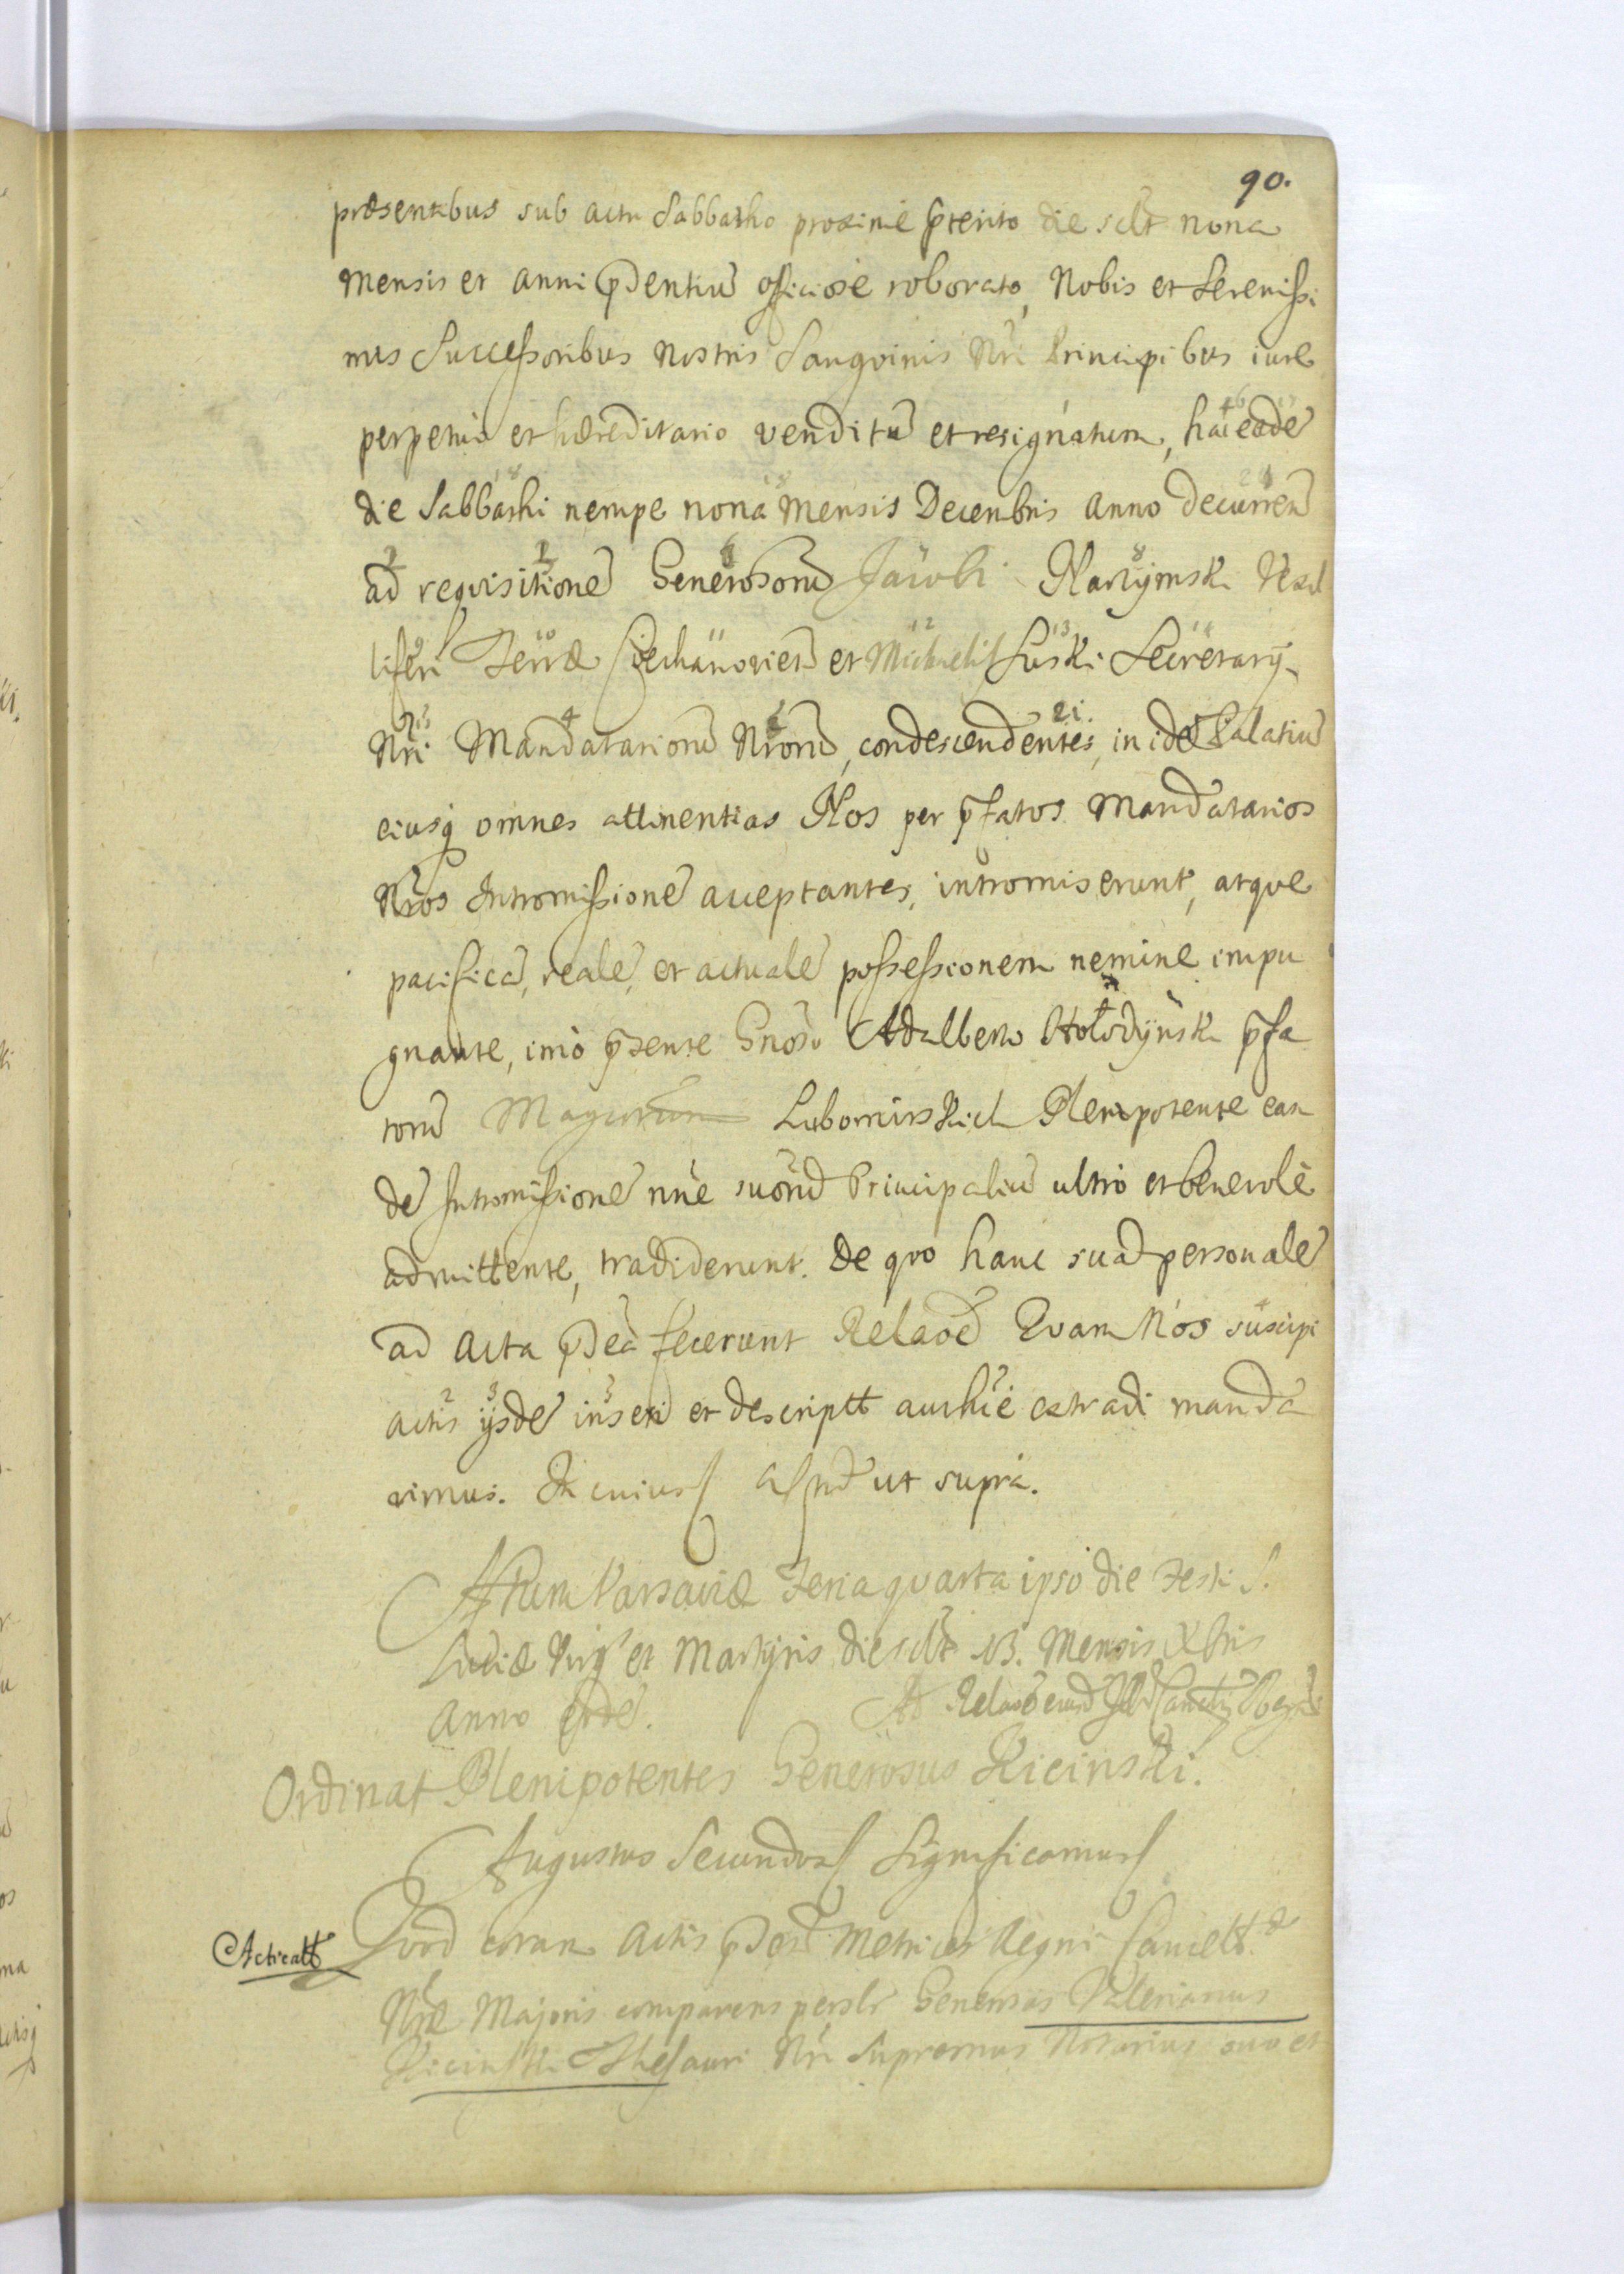 90.
præsentibus sub actu Sabbatho proximè p̃terito die sclt nona
Mensis et anni p̃dentiũ officiosè roborato, Nobis et Serenissi
mis Successoribus Nostris Sangvinis Nri Principibus iure
perpetuo et hæreditario venditũ et resignatum, hac eadẽ
die Sabbathi nempe nona Mensis Decembris anno decurreñ
ad reqvisitionẽ Generosorũ Jacobi Martynski Vexil
liferi Terræ Ciechanovien̄ et Michaelis Suski Secretarij
Nri Mandatariorũ Nrorũ, condescendentes, in idẽ Palatiũ
eiusq̃ omnes attinentias Nos per p̃fatos Mandatarios
Nros Intromissionẽ acceptantes, intromiserunt, atqve
pacificã, realẽ, et actualẽ possessionem nemine impu
gnante, imò p̃sente Gnoso Adalberto Hołodyński p̃fa
torũ Magcorum Lubomirskich Plenipotente ean
dẽ Intromissionẽ nñe suorũ Principaliũ ultrò et benevolè
admittente, tradiderunt. De qvo hanc suã personalẽ
ad Acta p̃dca fecerunt Relaõẽ Qvam Nos suscipi
actis ijsdẽ inseri et descriptt authcè extradi manda
vimus. In cuius Actũ ut supra.
Actum Varsaviæ Feria qvarta ipso die Festi S.
Luciæ Virg̃ et Martyris die sclt 13. Mensis Xbris
Anno eodẽ. Ad Relaõẽ eiusd Cancelrij Regni
Ordinat Plenipotentes Generosus Kicinski.
Augustus Secundus Significamus
Acticatt
Qvod coram Actis p̃sentt Metrices Regni Cancelt.
Nræ Majoris comparens persłr Generosus Valerianus
Kicinski Thesauri Nri Supremus Notarius suo et